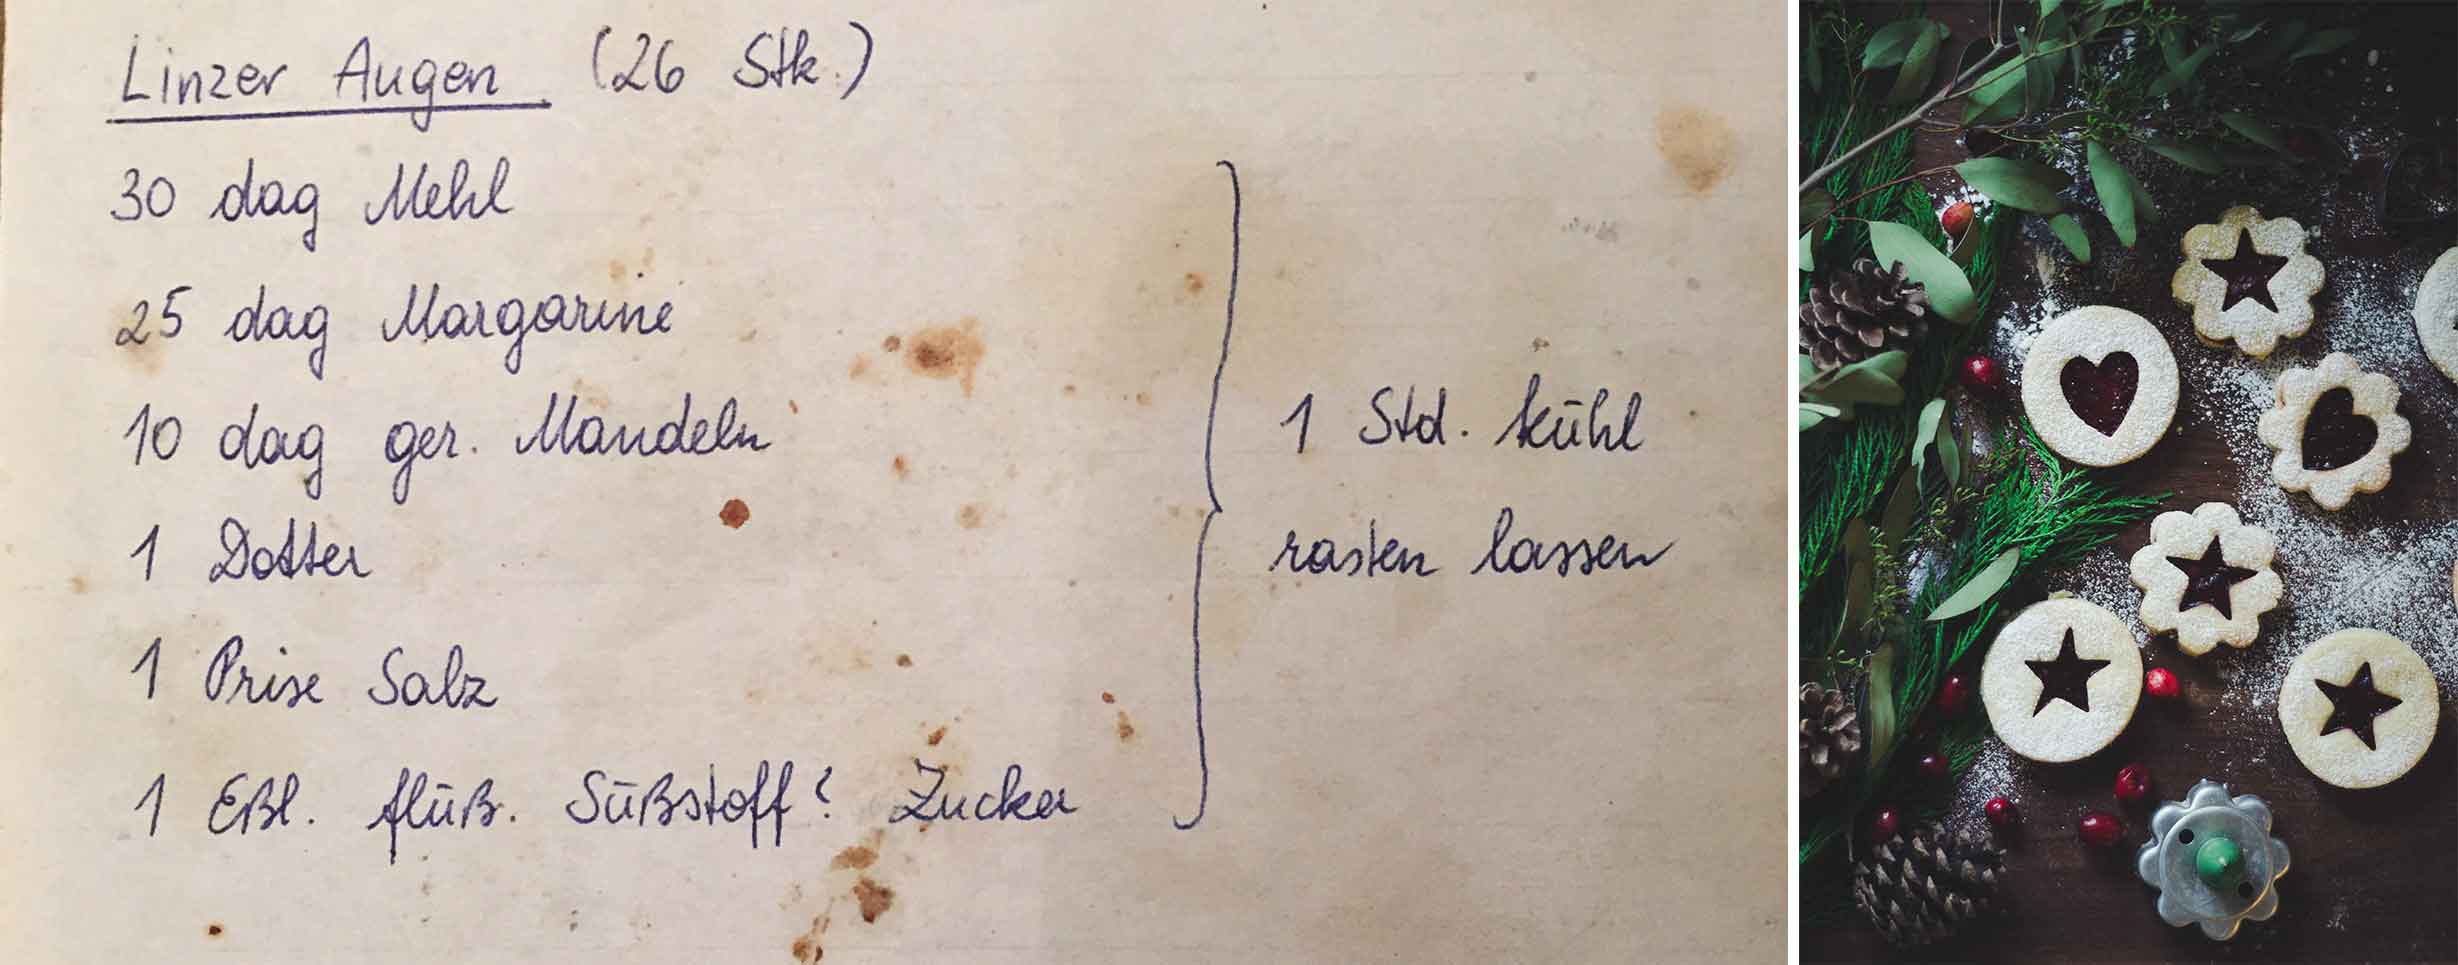 Linzer Augen (26 Stk.)
30 dag Mehl
25 dag Margarine
10 dag ger. Mandeln
1 Dotter
1 Prise Salz
1 Eßl. flüß. Süßstoff? Zucker
1 Std. kühl
rasten lassen